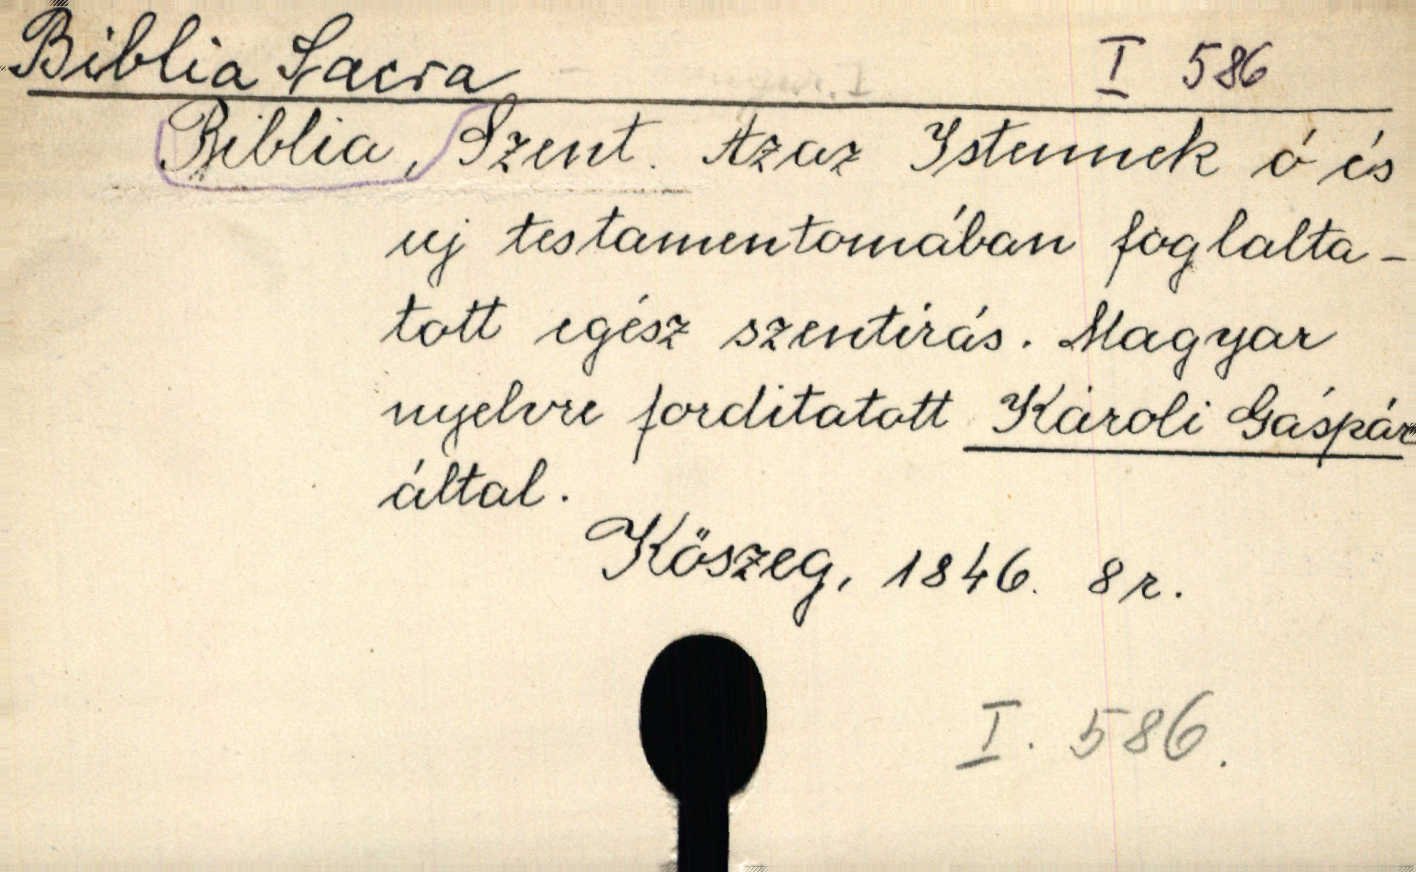 Biblia Sacra I 586
Biblia, Szent. Azaz Istennek ó és
uj testamentomában foglalta-
tott egész szentirás. Magyar
nyelvre forditatott Károli Gáspár
által.
Köszeg, 1846. 8r.
I. 586.